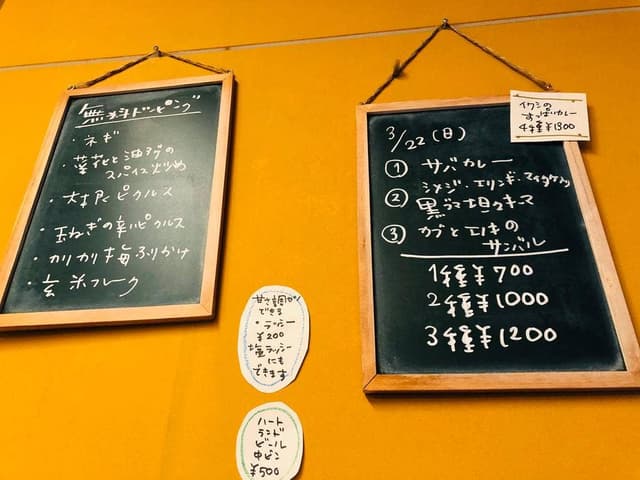 無料トッピング
・ネギ
・菜花と油揚の
スパイス炒め
・大根ピクルス
・玉ねぎの辛いピクルス
・カリカリ梅ふりかけ
・玄米フレーク
甘さ調節が
できる
・ラッシー
¥200
塩ラッシー
にも
できます
ハート
ランド
ビール
中ビン
¥500
イワシの
すっぱいカレー
4種¥1300
3/22(日)
① サバカレー
シメジ・エリンギ・マイタケ入り
② 黒ゴマ坦々キーマ
③ カブとエノキの
サンバル
1種¥700
2種¥1000
3種¥1200